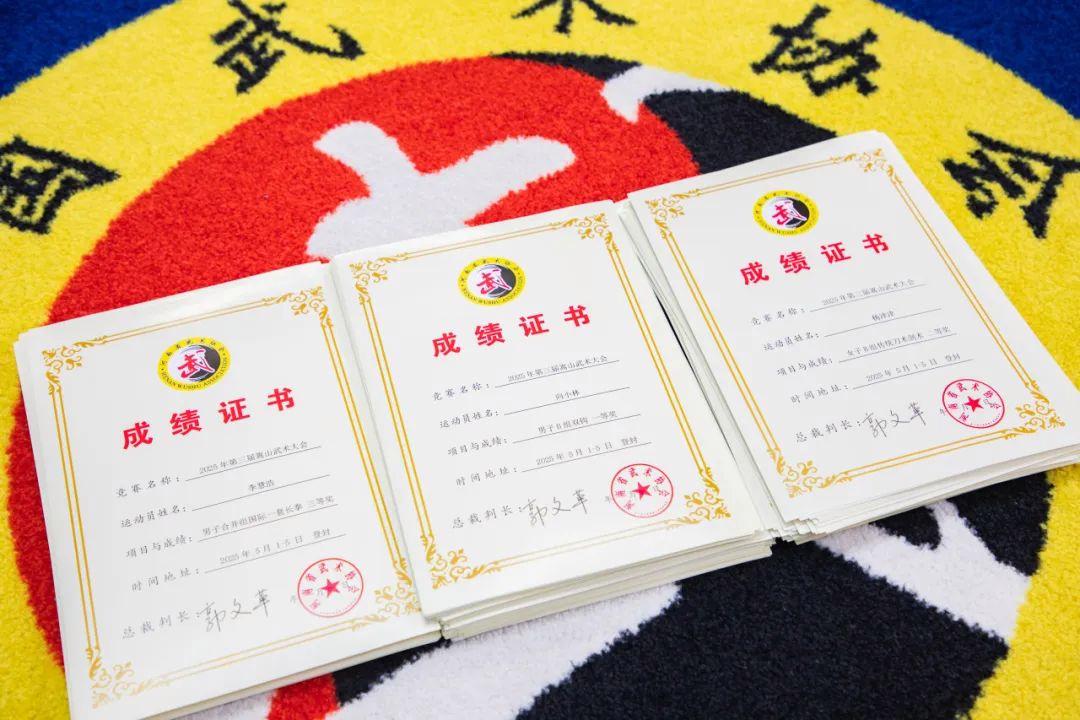 国武术协会
成绩证书
竞赛名称: 2025年第三届嵩山武术大会
运动员姓名: 李慧浩
项目与成绩: 男子合并组国际一套长拳 三等奖
时间地址: 2025年5月1-5日 登封
总裁判长: 郭文革
河南省武术协会
HENAN WUSHU ASSOCIATION
成绩证书
竞赛名称: 2025年第三届嵩山武术大会
运动员姓名: 向小林
项目与成绩: 男子B组双钩 一等奖
时间地址: 2025年5月1-5日 登封
总裁判长: 郭文革
河南省武术协会
武
HENAN WUSHU ASSOCIATION
成绩证书
竞赛名称: 2025年第三届嵩山武术大会
运动员姓名: 杨沛沛
项目与成绩: 女子B组传统刀术剑术 二等奖
时间地址: 2025年5月1-5日 登封
总裁判长: 郭文革
河南省武术协会